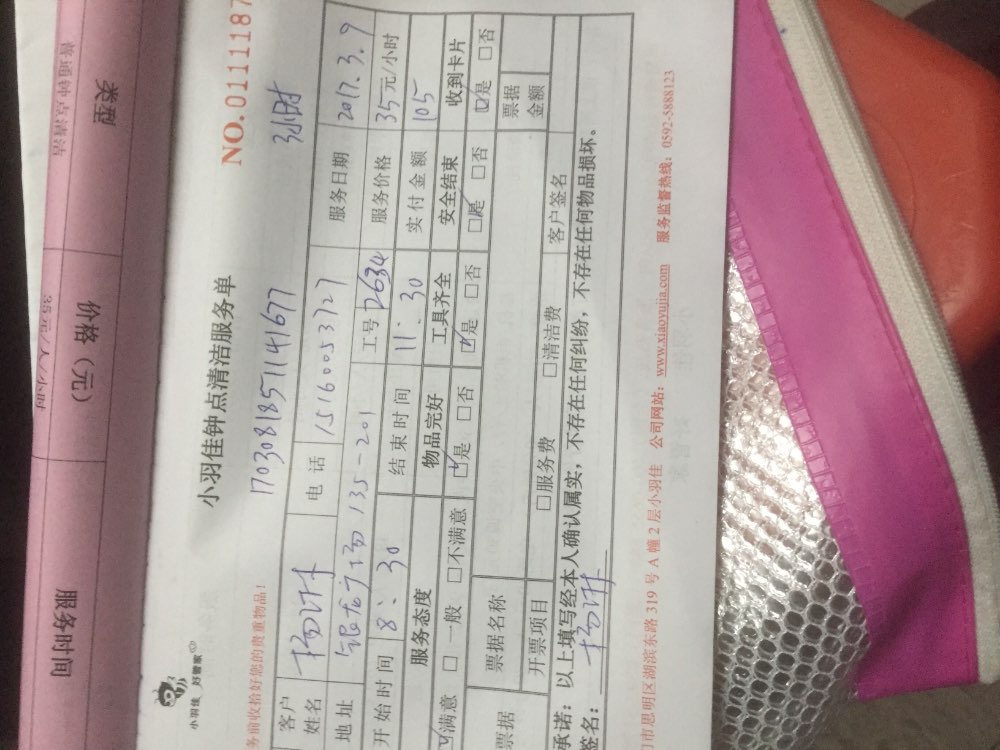 类型 价格（元） 服务时间
普通钟点清洁 35元/人/小时
小羽佳 好管家
小羽佳钟点清洁服务单
NO.0111187
务前收拾好您的贵重物品！
17030818511141677
3小时
客户姓名 电话 15160053727 服务日期 2017.3.9
地址 银龙广场135-201 工号 2634 服务价格 35元/小时
开始时间 8:30 结束时间 11:30 实付金额 105
服务态度 物品完好 工具齐全 安全结束 收到卡片
☑满意 □一般 □不满意 ☑是 □否 ☑是 □否 ☑是 □否 ☑是 □否
票据 票据名称 票据金额
开票项目 □服务费 □清洁费 客户签名
承诺：以上填写经本人确认属实，不存在任何纠纷，不存在任何物品损坏。
签名：
门市思明区湖滨东路319号A幢2层小羽佳 公司网站：www.xiaoyujia.com 服务监督热线：0592-5888123